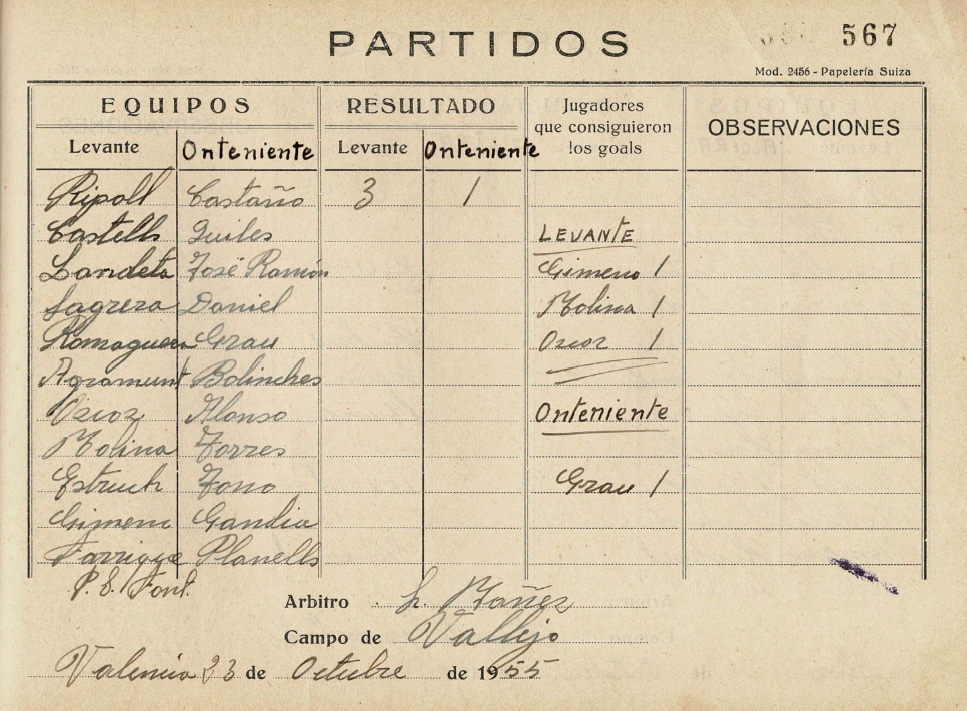 PARTIDOS
567
Mod. 2456 - Papelería Suiza
EQUIPOS RESULTADO Jugadores que consiguieron los goals OBSERVACIONES
Levante Onteniente Levante Onteniente
Ripoll Castaño 3 1
Castells Quiles LEVANTE
Landeta José Ramón Gimeno 1
Sagrera Daniel Molina 1
Romaguera Grau Oscoz 1
Agramunt Bolinches
Oscoz Alonso Onteniente
Molina Torres
Estruch Tono Grau 1
Gimeno Gandia
Planells
P.S. Font.
Arbitro
Campo de Vallejo
Valencia 23 de Octubre de 1955